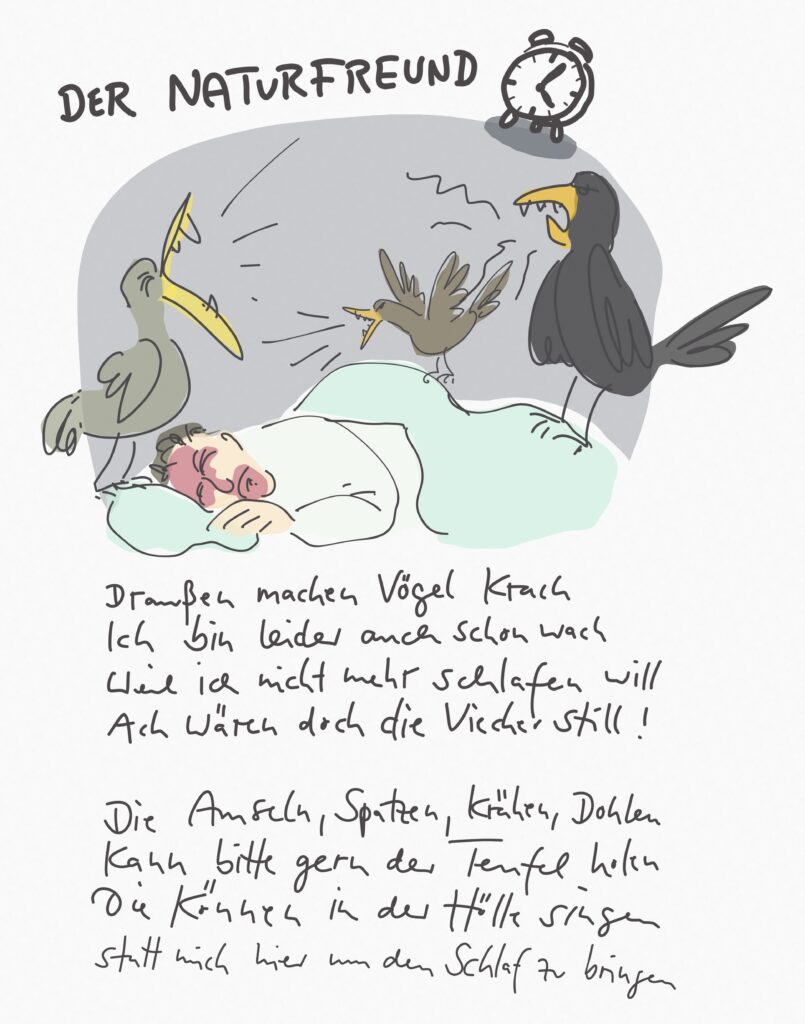 DER NATURFREUND
Draußen machen Vögel Krach
Ich bin leider auch schon wach
Weil ich nicht mehr schlafen will
Ach wären doch die Viecher still!
Die Amseln, Spatzen, Krähen, Dohlen
Kann bitte gern der Teufel holen
Die können in der Hölle singen
statt mich hier um den Schlaf zu bringen